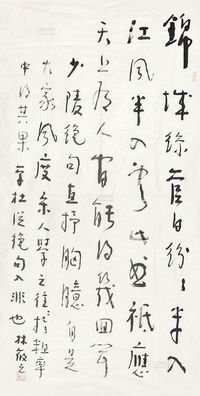 錦城絲管日紛〻半入
江風半入雲此曲祇應
天上有人間能得幾回聞
少陵絕句直抒胸臆自是
大家風度人學之往於粗率
得其果 學杜從絕句入非也 林散之